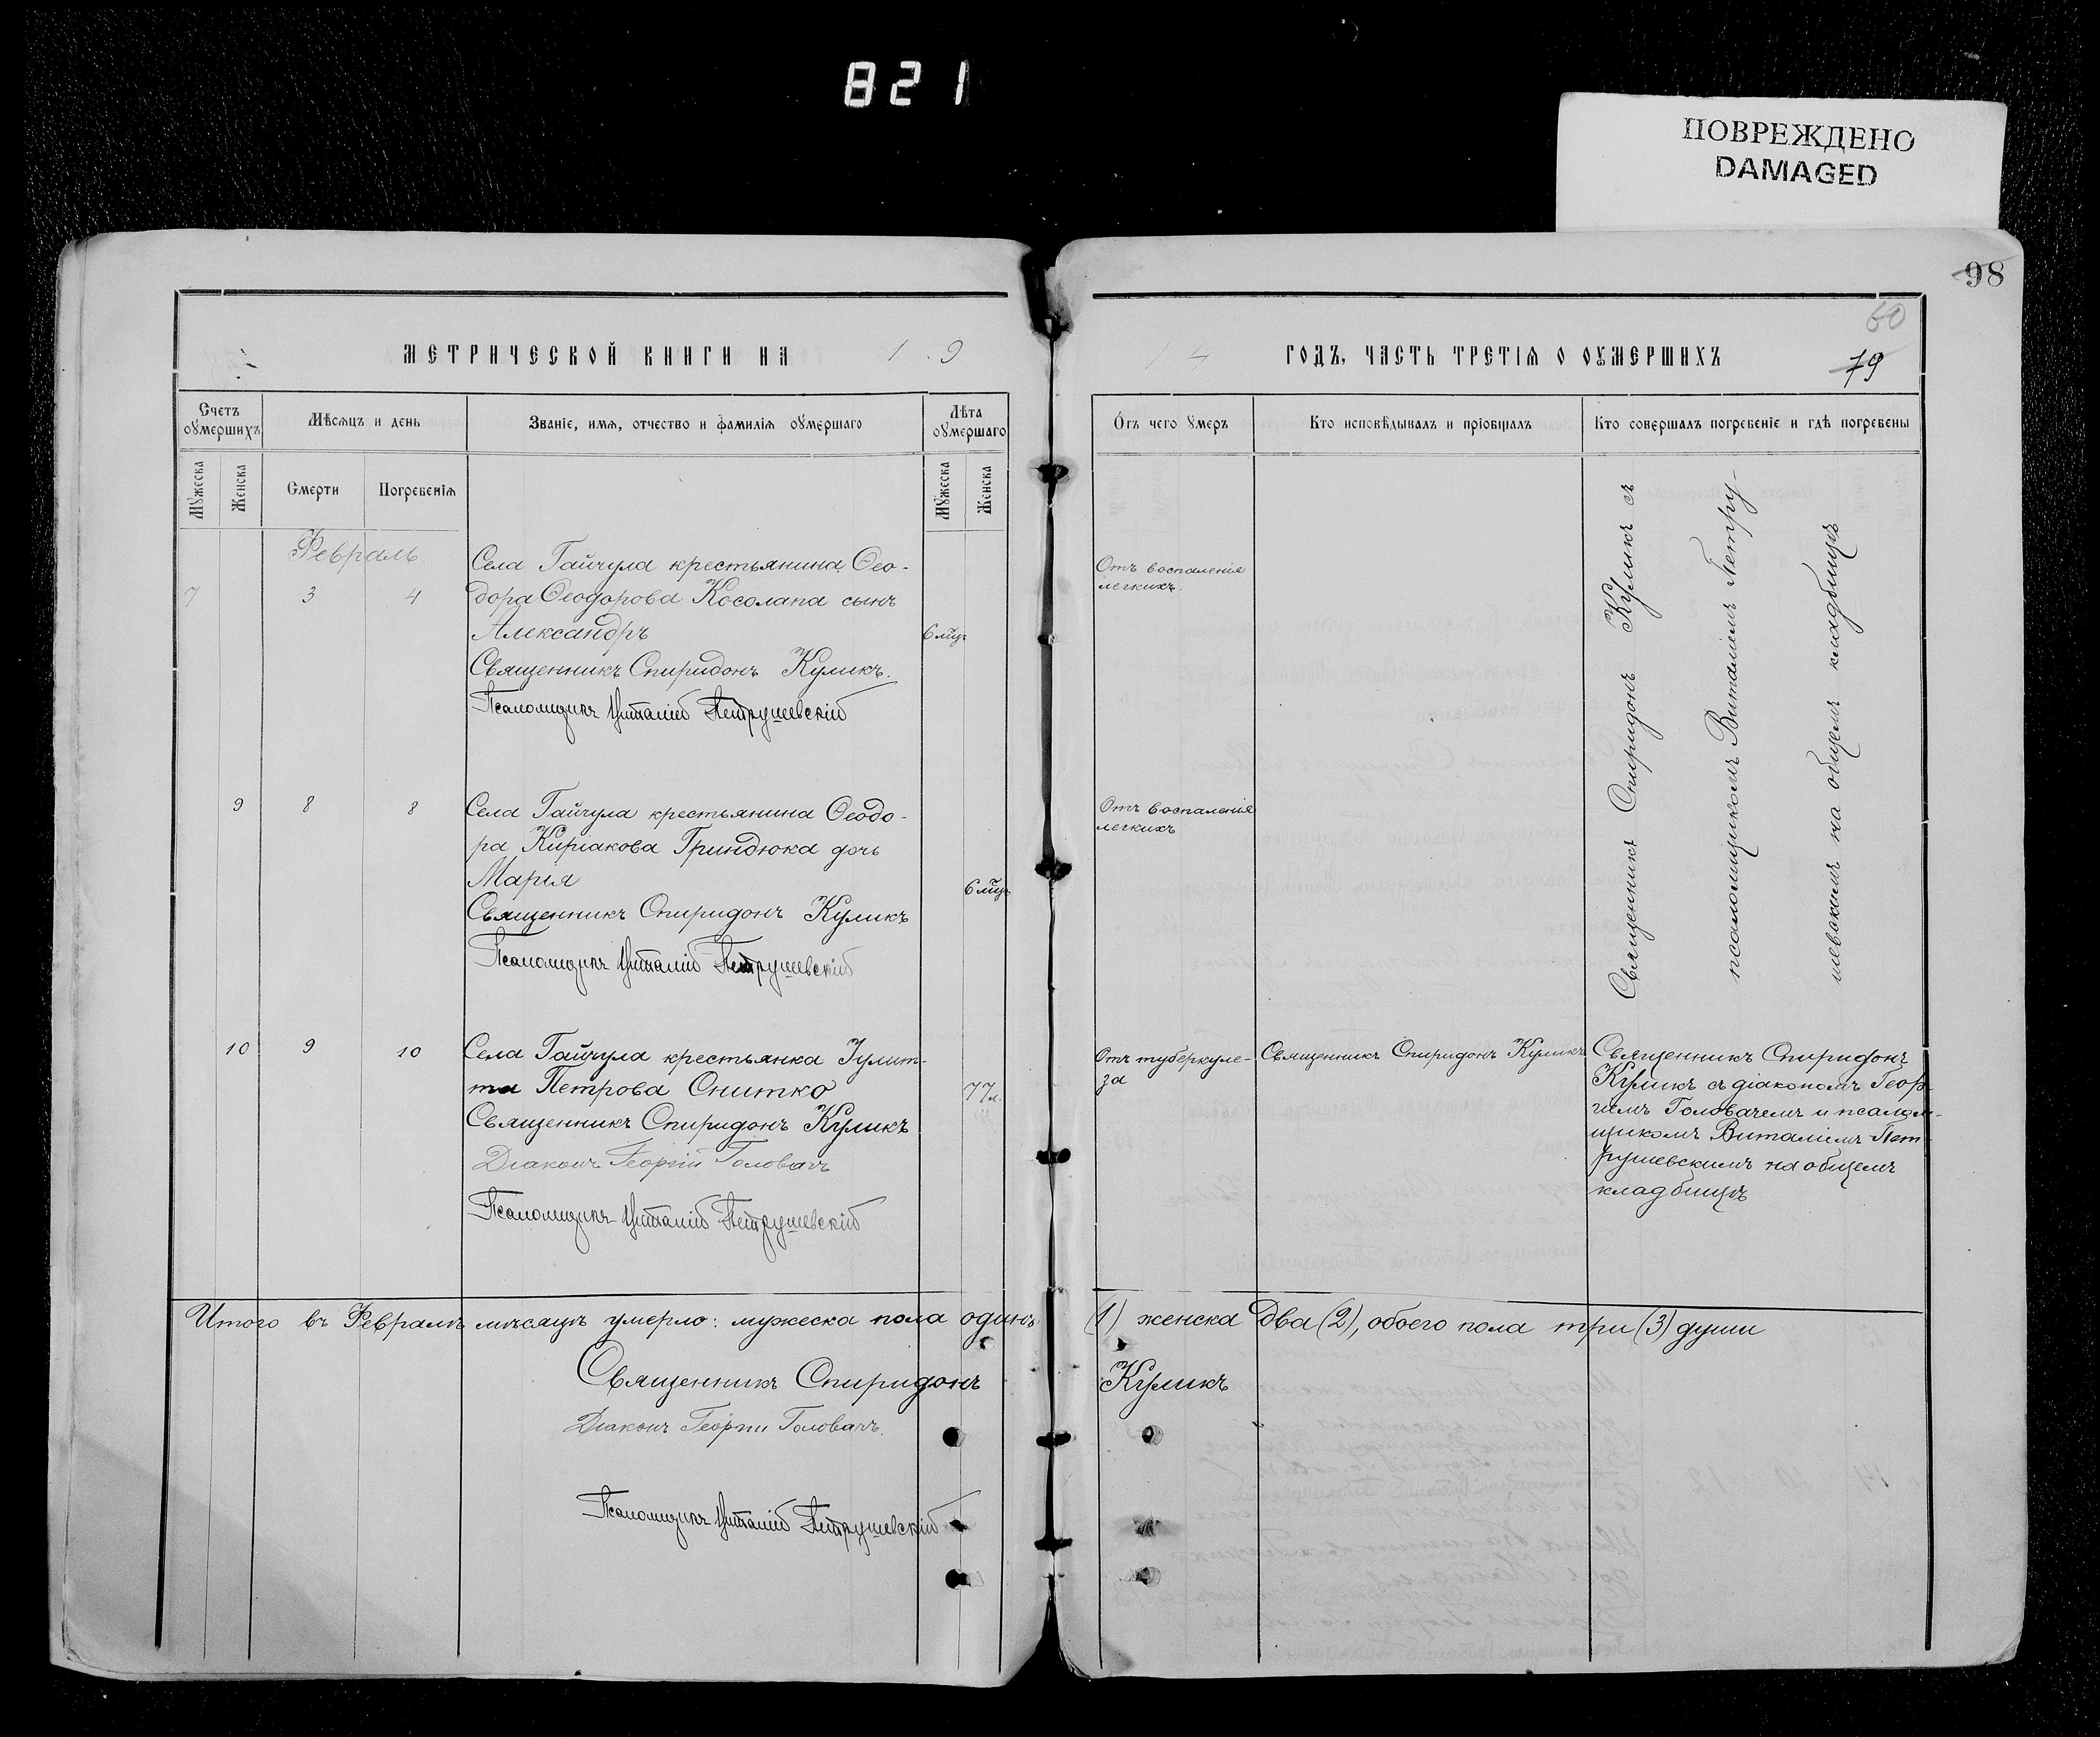 821
ПОВРЕЖДЕНО
DAMAGED
98
60
79
МЕТРИЧЕСКОЙ КНИГИ НА 1 9
14 ГОДЪ, ЧАСТЬ ТРЕТІЯ О ОУМЕРШИХЪ
Счетъ оумершихъ
Мѣсяцъ и день
Званіе, имя, отчество и фамилія оумершаго
Лѣта оумершаго
Отъ чего умеръ
Кто исповѣдывалъ и пріобщалъ
Кто совершалъ погребеніе и гдѣ погребены
Мужеска
Женска
Смерти
Погребенія
Мужеска
Женска
Февраль
7 3 4
Села Гайчула крестьянина Ѳео-
дора Ѳеодорова Косолапа сынъ
Александръ
6 мѣц
Священникъ Спиридонъ Куликъ.
Псаломщикъ Виталій Петрушевскій
Отъ воспаленія
легкихъ.
Священникъ Спиридонъ Куликъ съ
псаломщикомъ Виталіемъ Петру-
шевскимъ на общемъ кладбищѣ
9 8 8
Села Гайчула крестьянина Ѳеодо-
ра Киріакова Гриндюка дочь
Марія
6 мѣц
Священникъ Спиридонъ Куликъ
Псаломщикъ Виталій Петрушевскій
Отъ воспаленія
легкихъ
10 9 10
Села Гайчула крестьянка Іулит-
та Петрова Снитко
77 л.
Священникъ Спиридонъ Куликъ
Діаконъ Георгій Головачъ
Псаломщикъ Виталій Петрушевскій
Отъ туберкуле-
за
Священникъ Спиридонъ Куликъ
Священникъ Спиридонъ
Куликъ съ діакономъ Геор-
гіемъ Головачемъ и псалом-
щикомъ Виталіемъ Пет-
рушевскимъ на общемъ
кладбищѣ
Итого въ Февралѣ мѣсяцѣ умерло: мужеска пола одинъ (1) женска два (2), обоего пола три (3) души
Священникъ Спиридонъ Куликъ
Діаконъ Георгій Головачъ.
Псаломщикъ Виталій Петрушевскій